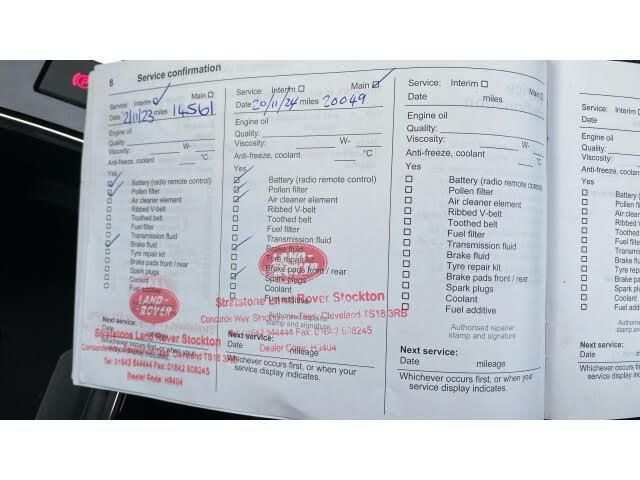 8 Service confirmation
Service: Interim Main
Date 2/11/23 miles 14561
Engine oil
Quality:
Viscosity: W-
Anti-freeze, coolant °C
Yes
Battery (radio remote control)
Pollen filter
Air cleaner element
Ribbed V-belt
Toothed belt
Fuel filter
Transmission fluid
Brake fluid
Tyre repair kit
Brake pads front / rear
Spark plugs
Coolant
Fuel additive
LAND-ROVER
Next service:
Date
Stratstone Land Rover Stockton
Whichever occurs first, or when your
service display indicates.
Tel: 01642 644444 Fax: 01642 608245
Dealer Code: H3404
Service: Interim Main
Date 20/11/24 miles 20049
Engine oil
Quality:
Viscosity: W-
Anti-freeze, coolant °C
Yes
Battery (radio remote control)
Pollen filter
Air cleaner element
Ribbed V-belt
Toothed belt
Fuel filter
Transmission fluid
Brake fluid
Tyre repair kit
Brake pads front / rear
Spark plugs
Coolant
Fuel additive
LAND ROVER
Stratstone Land Rover Stockton
Concorde Way, Stockton on Tees, Cleveland TS18 3RB
stamp and signature
01642 644444 Fax: 01642 608245
Dealer Code: H3404
Next service:
Date mileage
Whichever occurs first, or when your
service display indicates.
Service: Interim Main
Date miles
Engine oil
Quality:
Viscosity: W-
Anti-freeze, coolant °C
Yes
Battery (radio remote control)
Pollen filter
Air cleaner element
Ribbed V-belt
Toothed belt
Fuel filter
Transmission fluid
Brake fluid
Tyre repair kit
Brake pads front / rear
Spark plugs
Coolant
Fuel additive
Authorised repairer
stamp and signature
Next service:
Date mileage
Whichever occurs first, or when your
service display indicates.
Service: Interim
Date
Engine oil
Quality:
Viscosity:
Anti-freeze, coolant
Yes
Battery (
Pollen fil
Air clean
Ribbed
Toothed
Fuel filt
Transm
Brake f
Tyre re
Brake
Spark
Coola
Fuel
Next service:
Date
Whichever occ
service d